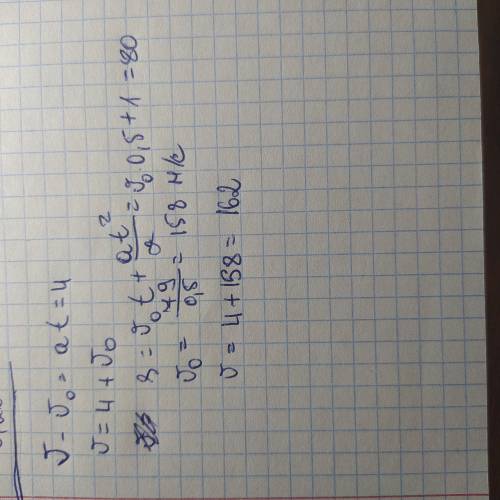 υ - υ₀ = at = 4
υ = 4 + υ₀
S = υ₀t + at²/2 = υ₀ 0,5 + 1 = 80
υ₀ = 79/0,5 = 158 м/с
υ = 4 + 158 = 162